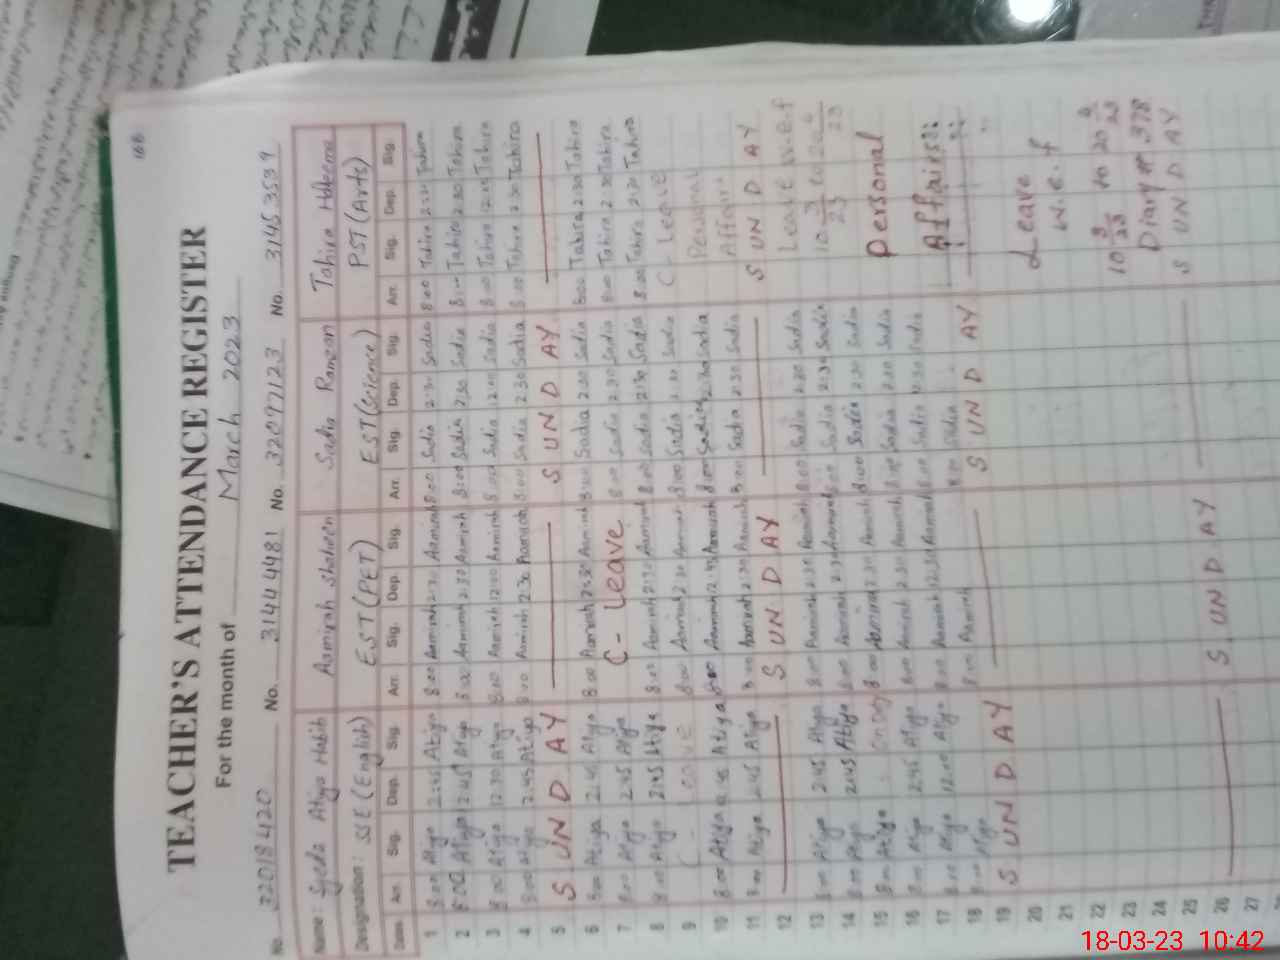 166
TEACHER'S ATTENDANCE REGISTER
For the month of March 2023
No. 32018420 No. 31444981 No. 32097123 No. 3145359
Name: Syeda Atiya Habib Aamirah Shaheen Sadia Ramzan Tahira Haleema
Designation: SSE (English) EST (PET) EST (Science) PST (Arts)
Dates Arr. Sig. Dep. Sig. Arr. Sig. Dep. Sig. Arr. Sig. Dep. Sig. Arr. Sig. Dep. Sig.
1 8:00 Atiya 2:45 Atiya 8:00 Aamirah 2:30 Aamirah 8:00 Sadia 2:30 Sadia 8:00 Tahira 2:30 Tahira
2 8:00 Atiya 2:45 Atiya 8:00 Aamirah 2:30 Aamirah 8:00 Sadia 2:30 Sadia 8:00 Tahira 2:30 Tahira
3 8:00 Atiya 12:30 Atiya 8:00 Aamirah 12:00 Aamirah 8:00 Sadia 12:00 Sadia 8:00 Tahira Tahira
4 8:00 Atiya 2:45 Atiya 8:00 Aamirah 2:30 Aamirah 8:00 Sadia 2:30 Sadia 8:00 Tahira 2:30 Tahira
5 S UN D AY S UN D AY
6 8:00 Atiya 2:45 Atiya 8:00 Aamirah 2:30 Aamirah 8:00 Sadia 2:30 Sadia 8:00 Tahira 2:30 Tahira
7 8:00 Atiya 2:45 Atiya C - Leave 8:00 Sadia 2:30 Sadia 8:00 Tahira 2:30 Tahira
8 8:00 Atiya 2:45 Atiya 8:00 Aamirah 2:30 Aamirah 8:00 Sadia 2:30 Sadia 8:00 Tahira 2:30 Tahira
9 C - Leave 8:00 Aamirah 2:30 Aamirah 8:00 Sadia 2:30 Sadia C - Leave
10 8:00 Atiya 2:45 Atiya 8:00 Aamirah 2:45 Aamirah 8:00 Sadia 2:30 Sadia Personal
11 8:00 Atiya 2:45 Atiya 8:00 Aamirah 2:30 Aamirah 8:00 Sadia 2:30 Sadia Affairs
12 S UN D AY S UN D AY
13 8:00 Atiya 2:45 Atiya 8:00 Aamirah 2:30 Aamirah 8:00 Sadia 2:30 Sadia Leave w.e.f
14 8:00 Atiya 2:45 Atiya 8:00 Aamirah 2:30 Aamirah 8:00 Sadia 2:30 Sadia 10 3/23 to 20 4/23
15 8:00 Atiya 8:00 Aamirah 2:30 Aamirah 8:00 Sadia 2:30 Sadia Personal
16 8:00 Atiya 2:45 Atiya 8:00 Aamirah 2:30 Aamirah 8:00 Sadia 2:30 Sadia
17 8:00 Atiya 12:00 Atiya 8:00 Aamirah 12:30 Aamirah 8:00 Sadia 2:30 Sadia Affairs
18 8:00 Atiya 8:00 Aamirah 8:00 Sadia
19 S UN D AY S UN D AY
20 Leave
21 w.e.f
22
23 10 3/23 to 20 4/23
24 Diary # 378
25 S UN D AY
26 S UN D AY
27
18-03-23 10:42